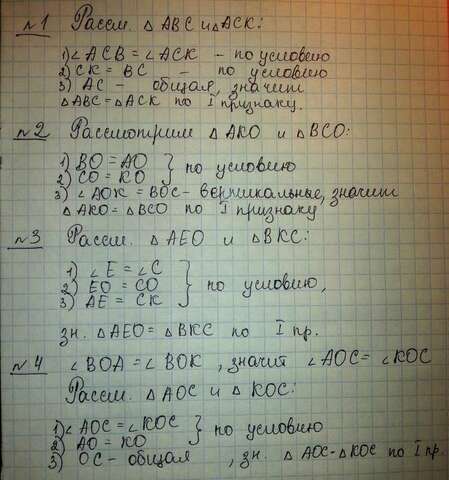 №1 Рассм. △ABC и △ACK:
1) ∠ACB = ∠ACK - по условию
2) CK = BC - по условию
3) AC - общая, значит
△ABC = △ACK по I признаку.
№2 Рассмотрим △AKO и △BCO:
1) BO = AO
2) CO = KO } по условию
3) ∠AOK = BOC - вертикальные, значит
△AKO = △BCO по I признаку
№3 Рассм. △AEO и △BKC:
1) ∠E = ∠C
2) EO = CO } по условию,
3) AE = CK
зн. △AEO = △BKC по I пр.
№4 ∠BOA = ∠BOK, значит ∠AOC = ∠KOC
Рассм. △AOC и △KOC:
1) ∠AOC = ∠KOC
2) AO = KO } по условию
3) OC - общая, зн. △AOC - △KOC по I пр.